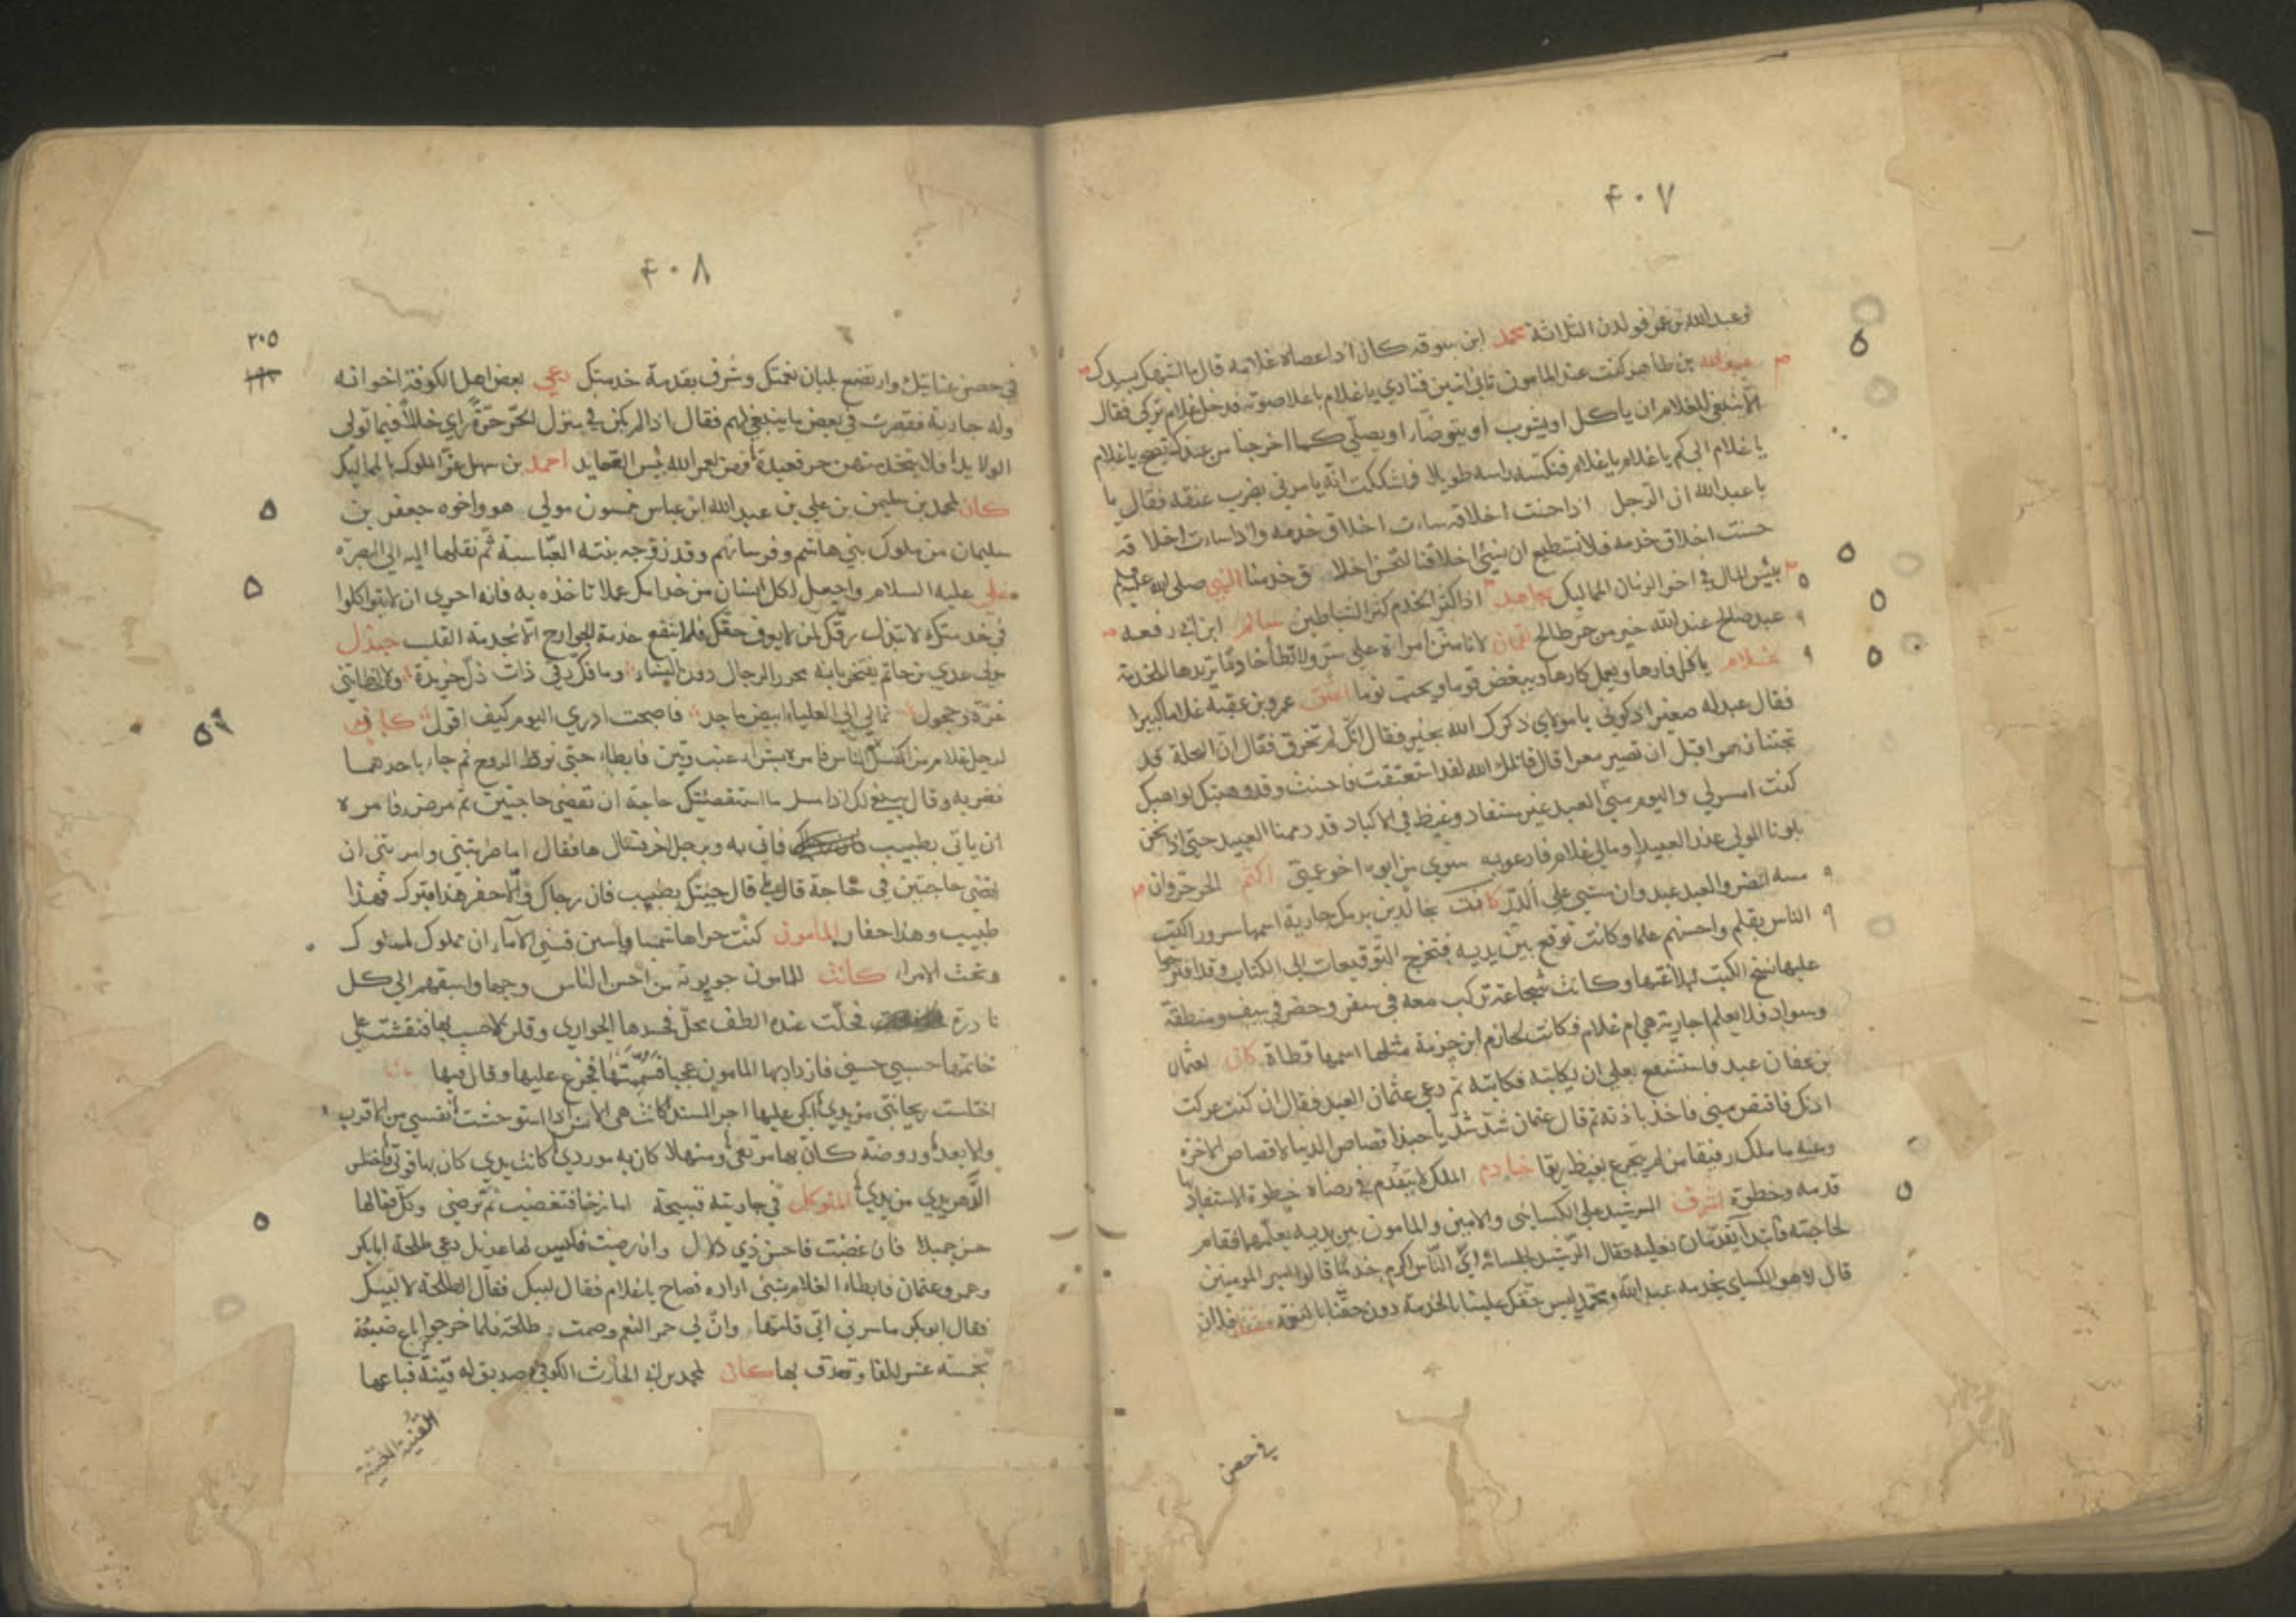 ۴۰۷
وعبد الله بن عمر فولدن الثلاثة محمد ابن سوقه كان اذا عصاه غلامه قال ما اشبهك بسيدك
عبد الله بن طاهر كنت عند المامون ثاني اثنين فنادي يا غلام يا غلام باعلا صوته فدخل غلام تركي فقال
الا ينبغي للغلام ان ياكل او يشرب او يتوضأ او يصلي كلما اخرجنا من عندك تصيح يا غلام
يا غلام الي كم يا غلام يا غلام فنكس راسه طويلا فما شككت انه يامرني بضرب عنقه فقال يا
يا عبد الله ان الرجل اذا حسنت اخلاقه ساءت اخلاق خدمه واذا ساءت اخلاقه
حسنت اخلاق خدمه فلا نستطيع ان نسيئ اخلاقنا لتحسن اخلاق خدمنا النبي صلى الله عليه وسلم
بئس المال في اخر الزمان المماليك مجاهد اذا كثر الخدم كثر الشياطين سالم ابن ابي رفعه
عبد صالح عند الله خير من حر طالح لقمان لا تامنن امراة علي سر ولا تطأ خادمة تريدها للخدمة
غلام ياكل فارها ويعمل كارها ويبغض قوما ويحب نوما اعتق عمرو بن عتبة غلاما كبيرا
فقال عبد له صغير اذكرني يا مولاي ذكرك الله بخير فقال انك لم تخرف فقال ان النخلة قد
تجتنا زهوا قبل ان تصير معوا قال قاتلك الله لقد استعتقت فاحسنت وقد وهبتك لواهبك
كنت امس لي واليوم مني العبد غير مستفاد وغيظ في الاكباد قد ذممنا العبيد حتي اذا نحن
بلونا الموالي عذرنا العبيدا ومالي غلام فادعو به سوي من ابوه اخو عمتي اكثم الحر حر وان
مسه الضر والعبد عبد وان مشي علي الدر كانت لخالد بن برمك جارية اسمها سرور اكتب
الناس بقلم واحسنهم علما وكانت توقع بين يديه فتخرج التوقيعات الي الكتاب وقد اقترحوا
عليها نسخ الكتب لبلاغتها وكانت شجاعة تركب معه في سفر وحضر في سيف ومنطقة
وسواد فلا يعلم اجارية هي ام غلام فكانت لخازم ابن خزيمة مثلها اسمها قطاة كان لعثمان
بن عفان عبد فاستشفع بعلي ان يكاتبه فكاتبه ثم دعي عثمان العبد فقال ان كنت عركت
اذنك فاقتص مني فاخذ باذنه ثم قال عثمان شد شد يا حبذا قصاص الدنيا لا قصاص الاخرة
وعنه ما ملك رفيقا من لم يتجرع بغيظ ريقا خادم الملك لا يتقدم في رضاه خطوة الا استفاد بها
قدمه وحظوة اشرف الرشيد علي الكسائي والامين والمامون بين يديه يعلمهما فقام
لحاجته فابتدرا يقدمان نعليه فقال الرشيد لجلسائه اي الناس اكرم خدما قالوا امير المومنين
قال لا هو الكسائي يخدمه عبد الله ومحمد ليس حقك علينا بالخدمة دون حقنا بالنعمة فلان
في حضن
۴۰۸
٢٠٥
في حضن عنايتك وارتضع بلبان نعمتك وشرف بقدمة خدمتك دعي بعض اهل الكوفة اخوانه
وله جارية فقصرت في بعض ما ينبغي لهم فقال اذا لم يكن في منزل الحر حرة راي خللا فيما تولي
الولايد فلا يتخذ منهن حر قعيدة فهن لعمر الله بئس القعايد احمد بن سهل عز الملوك بالمماليك
كان لمحمد بن سليمن بن علي بن عبد الله ابن عباس خمسون مولي هو واخوه جعفر بن
سليمان من ملوك بني هاشم وفرسانهم وقد زوجه بنته العباسة ثم نقلها اليه الي البصره
علي عليه السلام واجعل لكل انسان من خدامك عملا تاخذه به فانه احري ان لا يتواكلوا
في خدمتك لا تبذل رقك لمن لا يعرف حقك فلا ينتفع خدمة الجوارح الا بخدمة القلب جندل
مولي عدي بن حاتم يفتخر بانه محرر الرجال دون النساء وما فك رقي ذات دل خريدة ولا اخطاتني
غرة وحجول نماني الي العلياء ابيض ماجد فاصبحت ادري اليوم كيف اقول كان
لرجل غلام من اكسل الناس فامره بشراء عنب وتين فابطاء حتي نوط الروح ثم جاء باحدهما
فضربه وقال ينبغي لك اذا استقضيتك حاجة ان تقضي حاجتين ثم مرض فامره
ان ياتي بطبيب فاتي به وبرجل اخر فقال ها فقال اما ضربتني وامرتني ان
اقضي حاجتين في حاجة قال بلي قال جيتك بطبيب فان رجاك والا حفر هذا قبرك فهذا
طبيب وهذا حفار المامون
وتحت الامراء كانت للمامون جويرية من احسن الناس وجها واسبقهم الي كل
نادرة فحلت عنده الطف محل فحسدها الجواري وقلن لا حسب لها فنقشت علي
خاتمها حسبي حسني فازداد بها المامون عجبا فسمتها فجزع عليها وقال فيها
اختلست ريحانتي من يدي ابكي عليها اخر المسند كانت هي الانس اذا استوحشت نفسي من الاقرب
والابعد وروضة كان بها مرتعي ومنهلا كان به موردي كانت يدي كان بها قوتي فاختلس
الدهر يدي من يدي المتوكل في جاريته قبيحة امازحها فتغضب ثم ترضي وكل فعالها
حسن جميل فان غضبت فاحسن ذي دلال وان رضيت فليس لها عديل دعي طلحة ابا بكر
وعمر وعثمان فابطاء الغلام بشئ اراده فصاح يا غلام فقال لبيك فقال طلحة لا لبيك
فقال ابو بكر ما سرني اني قلتها وان لي حمر النعم وصمت طلحة فلما خرجوا باع ضيعة
بخمسة عشر الفا وتصدق بها كان لمحمد بن الحارث الكوفي صديق له قينة فباعها
القينة المغنية